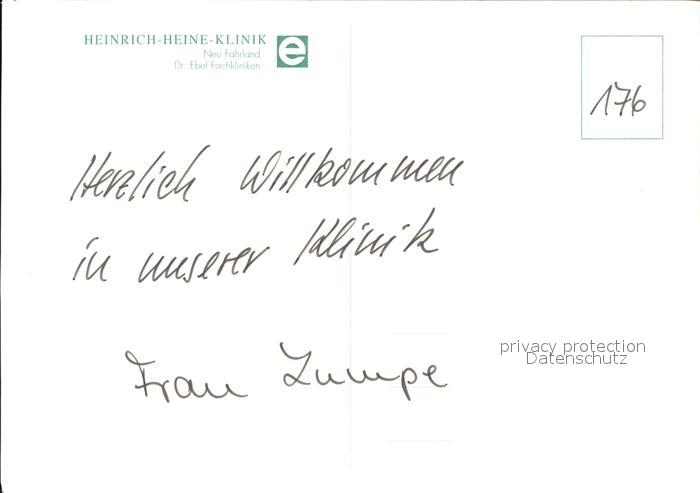 HEINRICH-HEINE-KLINIK
e
Neu Fahrland
Dr. Ebel Fachkliniken
176
Herzlich Willkommen
in unserer Klinik
privacy protection
Datenschutz
Frau Zumpe